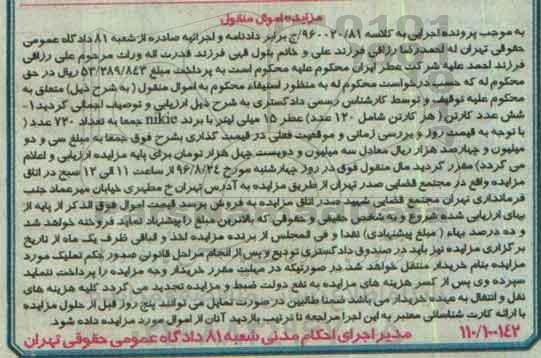 مزایده اموال منقول
به موجب پرونده اجرایی به کلاسه ۹۶۰۰۲۰/۸۱/ج برابر دادنامه و اجرائیه صادره از شعبه ۸۱ دادگاه عمومی
حقوقی تهران له احمدرضا رزاقی فرزند علی و خانم بتول قبی فرزند قدرت اله وراث مرحوم علی رزاقی
فرزند احمد علیه شرکت عطر ایران محکوم علیه محکوم است به پرداخت مبلغ ۵۳/۲۸۹/۸۴۳ ریال در حق
محکوم له که حسب درخواست محکوم له به منظور استیفاء محکوم به اموال منقول (به شرح ذیل) متعلق به
محکوم علیه توقیف و توسط کارشناس رسمی دادگستری به شرح ذیل ارزیابی و توصیف اجمالی گردید ۱-
شش عدد کارتن (هر کارتن شامل ۱۲۰ عدد) عطر ۱۵ میلی لیتر با برند nikie جمعا به تعداد ۷۲۰ عدد (
با توجه به قیمت روز و بررسی زمانی و موقعیت فعلی در قیمت گذاری بشرح فوق جمعا به مبلغ سی و دو
میلیون و چهارصد هزار ریال معادل سه میلیون و دویست چهل هزار تومان برای پایه مزایده ارزیابی و اعلام
می گردد) مقرر گردید مال منقول فوق در روز چهارشنبه مورخ ۹۶/۸/۲۴ از ساعت ۱۱ الی ۱۲ صبح در اتاق
مزایده واقع در مجتمع قضایی صدر تهران از طریق مزایده به آدرس تهران خ مطهری خیابان میرعماد جنب
فرمانداری تهران مجتمع قضایی شهید صدر اتاق مزایده به فروش برسد قیمت اموال فوق الذکر از پایه از
بهای ارزیابی شده شروع و به شخص حقیقی و حقوقی که بالاترین مبلغ را پیشنهاد نماید فروخته خواهد شد
و ده درصد بهاء (مبلغ پیشنهادی) نقدا و فی المجلس از برنده مزایده اخذ و الباقی ظرف یک ماه از تاریخ
برگزاری مزایده نیز باید در صندوق دادگستری تودیع و پس از انجام مراحل قانونی صدور حکم تملیک مورد
مزایده بنام خریدار منتقل خواهد شد در صورتیکه در مهلت مقرر خریدار وجه مزایده را پرداخت ننماید
سپرده وی پس از کسر هزینه های مزایده به نفع دولت ضبط و مزایده تجدید می گردد کلیه هزینه های
نقل و انتقال به عهده خریدار می باشد ضمنا طالبین در صورت تمایل می توانند پنج روز قبل از حلول مزایده
با ارائه کارت شناسائی معتبر به این اجرا مراجعه تا ترتیب بازدید آنان از اموال مورد مزایده داده شود.
۱۱۰/۱۰۰۱۴۲ مدیر اجرای احکام مدنی شعبه ۸۱ دادگاه عمومی حقوقی تهران